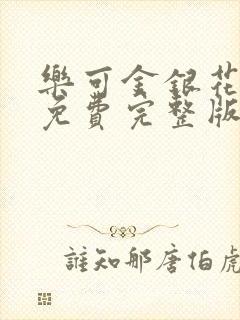 樂可金銀花
免費完整版
誰知那唐伯虎